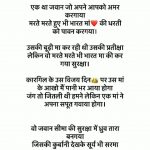 एक था जवान जो अपने आपको अमर
करगाया
मरते मरते हुए भी भारत मां❤️ की धरती
को पावन करगया।
उसकी बूढ़ी मा कर रही थी उसकी प्रतीक्षा
लेकिन वो मरते मरते भी भारत मां की कर
गया सुरक्षा।
कारगिल के उस विजय दिन पर उस मां
के आखों में पानी भर आया होगा
जंग तो जितली थी हमने लेकिन एक मां ने
अपना सपूत गवाया होगा।
वो जवान सीमा की सुरक्षा में ध्रुव तारा
बनगया
जिसकी कुर्बानी देखके सूर्य भी सरमा